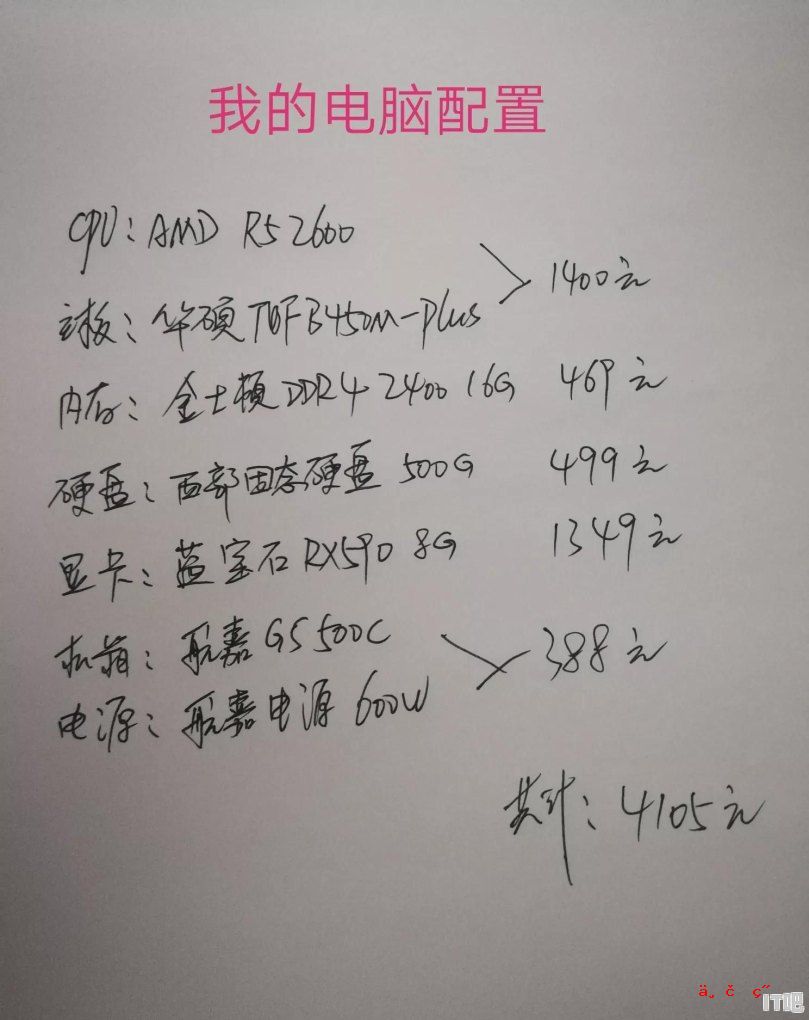 我的电脑配置
CPU: AMD R5 2600
1400元
主板: 华硕 TUF B450M-Plus
内存: 金士顿 DDR4 2400 16G 469元
硬盘: 西部固态硬盘 500G 499元
显卡: 蓝宝石 RX590 8G 1349元
机箱: 航嘉 GS500C
388元
电源: 航嘉电源 600W
共计: 4105元
ä¸ č ç˝
IT吧